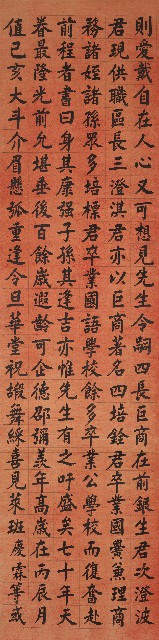 則愛戴自在人心又可想見先生令嗣四長巨商在前銀生君次澄波
君現供職區長三澄淇君亦以巨商著名四培銓君卒業國黌兼理商
務諸姪諸孫眾多培標君卒業國語學校餘多卒業公學校而復奮赴
前程者書曰身其康强子孫其逢吉亦惟先生有之吁盛矣七十年天
眷最隆光前允堪垂後百餘歲遐齡可企德邵彌羨年高歲在丙辰月
值己亥大斗介眉懸弧重逢今旦華堂祝嘏舞綵喜見萊班慶霖等或